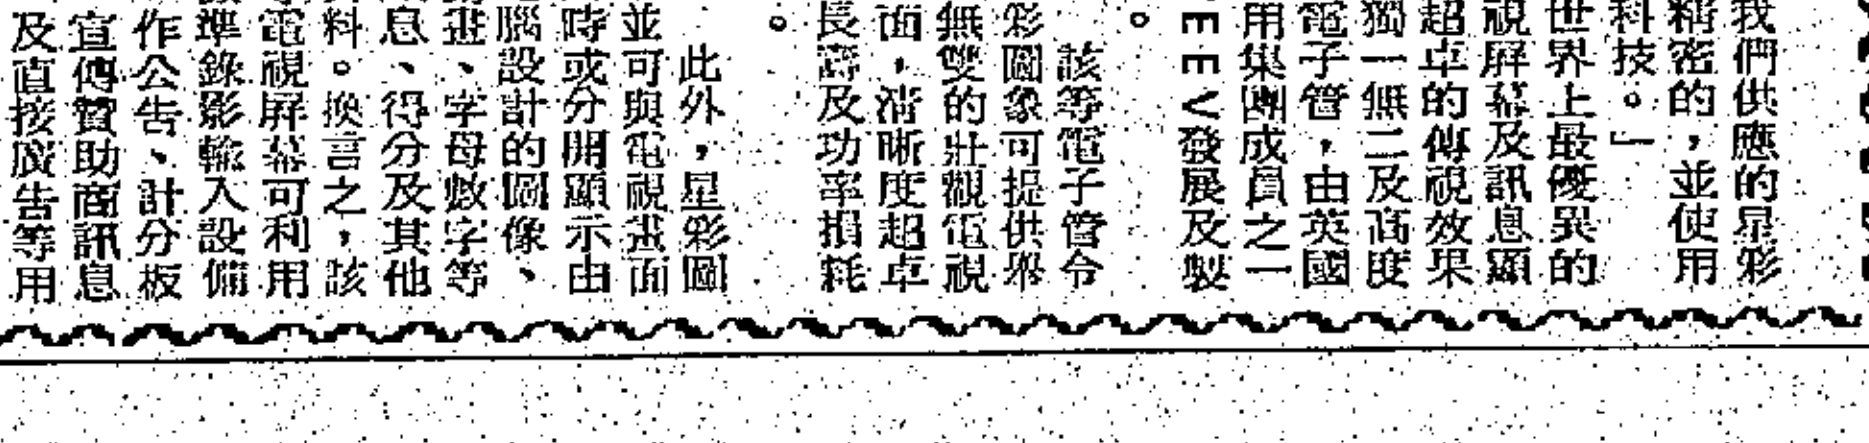 我們供應的星彩
精密的，並使用
科技。」
世界上最優異的
視屏幕及訊息顯
超卓的傳視效果
獨一無二及高度
電子管，由英國
用集團成員之一
EEV發展及製
。
該等電子管令
彩圖象可提供舉
無雙的壯觀電視
面，清晰度超卓
長壽及功率損耗
。
此外，星彩圖
並可與電視畫面
時或分開顯示由
腦設計的圖像、
畫、字母數字等
息、得分及其他
料。換言之，該
電視屏幕可利用
準錄影輸入設備
作公告、計分板
宣傳贊助商訊息
及直接廣告等用